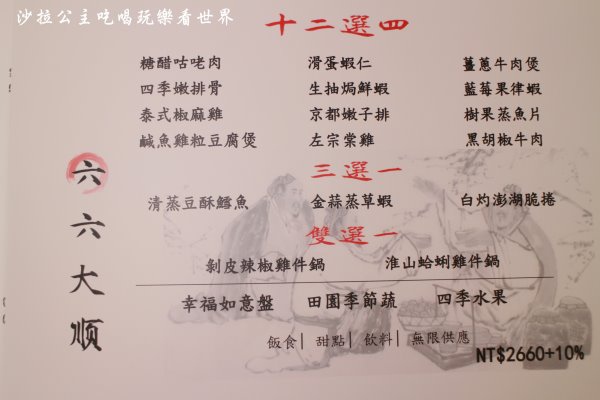 沙拉公主吃喝玩樂看世界
十二選四
糖醋咕咾肉 滑蛋蝦仁 薑蔥牛肉煲
四季嫩排骨 生抽焗鮮蝦 藍莓果律蝦
泰式椒麻雞 京都嫩子排 樹果蒸魚片
鹹魚雞粒豆腐煲 左宗棠雞 黑胡椒牛肉
三選一
清蒸豆酥鱈魚 金蒜蒸草蝦 白灼澎湖脆捲
雙選一
剝皮辣椒雞件鍋 淮山蛤蜊雞件鍋
幸福如意盤 田園季節蔬 四季水果
飯食| 甜點| 飲料| 無限供應
NT$2660+10%
六六大顺